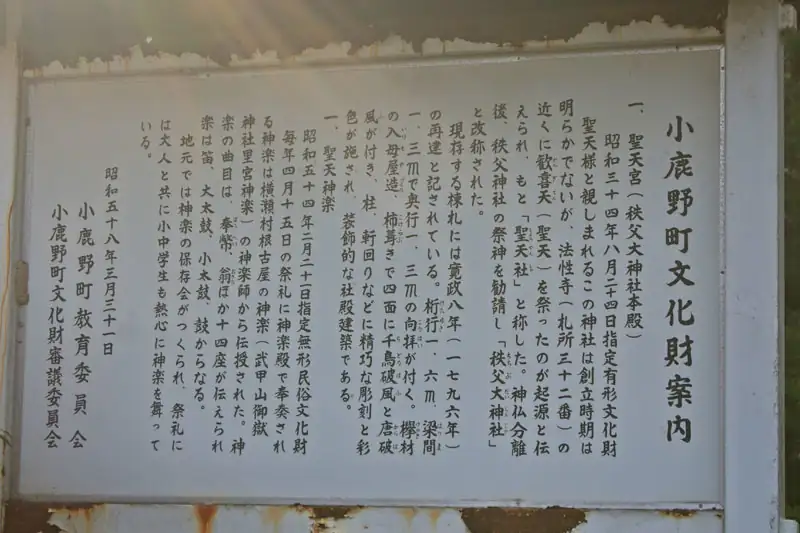 小鹿野町文化財案内
一、聖天宮(秩父大神社本殿)
昭和三十四年八月二十四日指定有形文化財
聖天様と親しまれるこの神社は創立時期は
明らかでないが、法性寺(札所三十二番)の
近くに歓喜天(聖天)を祭ったのが起源と伝
えられ、もと「聖天社」と称した。神仏分離
後、秩父神社の祭神を勧請し「秩父大神社」
と改称された。
現存する棟札には寛政八年(一七九六年)
の再建と記されている。桁行一.六m 梁間
一.三mで奥行一.三mの向拝が付く。欅材
の入母屋造、柿葺きで四面に千鳥破風と唐破
風が付き、柱、軒回りなどに精巧な彫刻と彩
色が施され、装飾的な社殿建築である。
一、聖天神楽
昭和五十四年二月二十一日指定無形民俗文化財
毎年四月十五日の祭礼に神楽殿で奉奏され
る神楽は横瀬村根古屋の神楽(武甲山御嶽
神社里宮神楽)の神楽師から伝授された。神
楽の曲目は、奉幣、翁ほか十四座が伝えられ
楽は笛、大太鼓、小太鼓、鼓からなる。
地元では神楽の保存会がつくられ、祭礼に
は大人と共に小中学生も熱心に神楽を舞って
いる。
昭和五十八年三月三十一日
小鹿野町教育委員会
小鹿野町文化財審議委員会